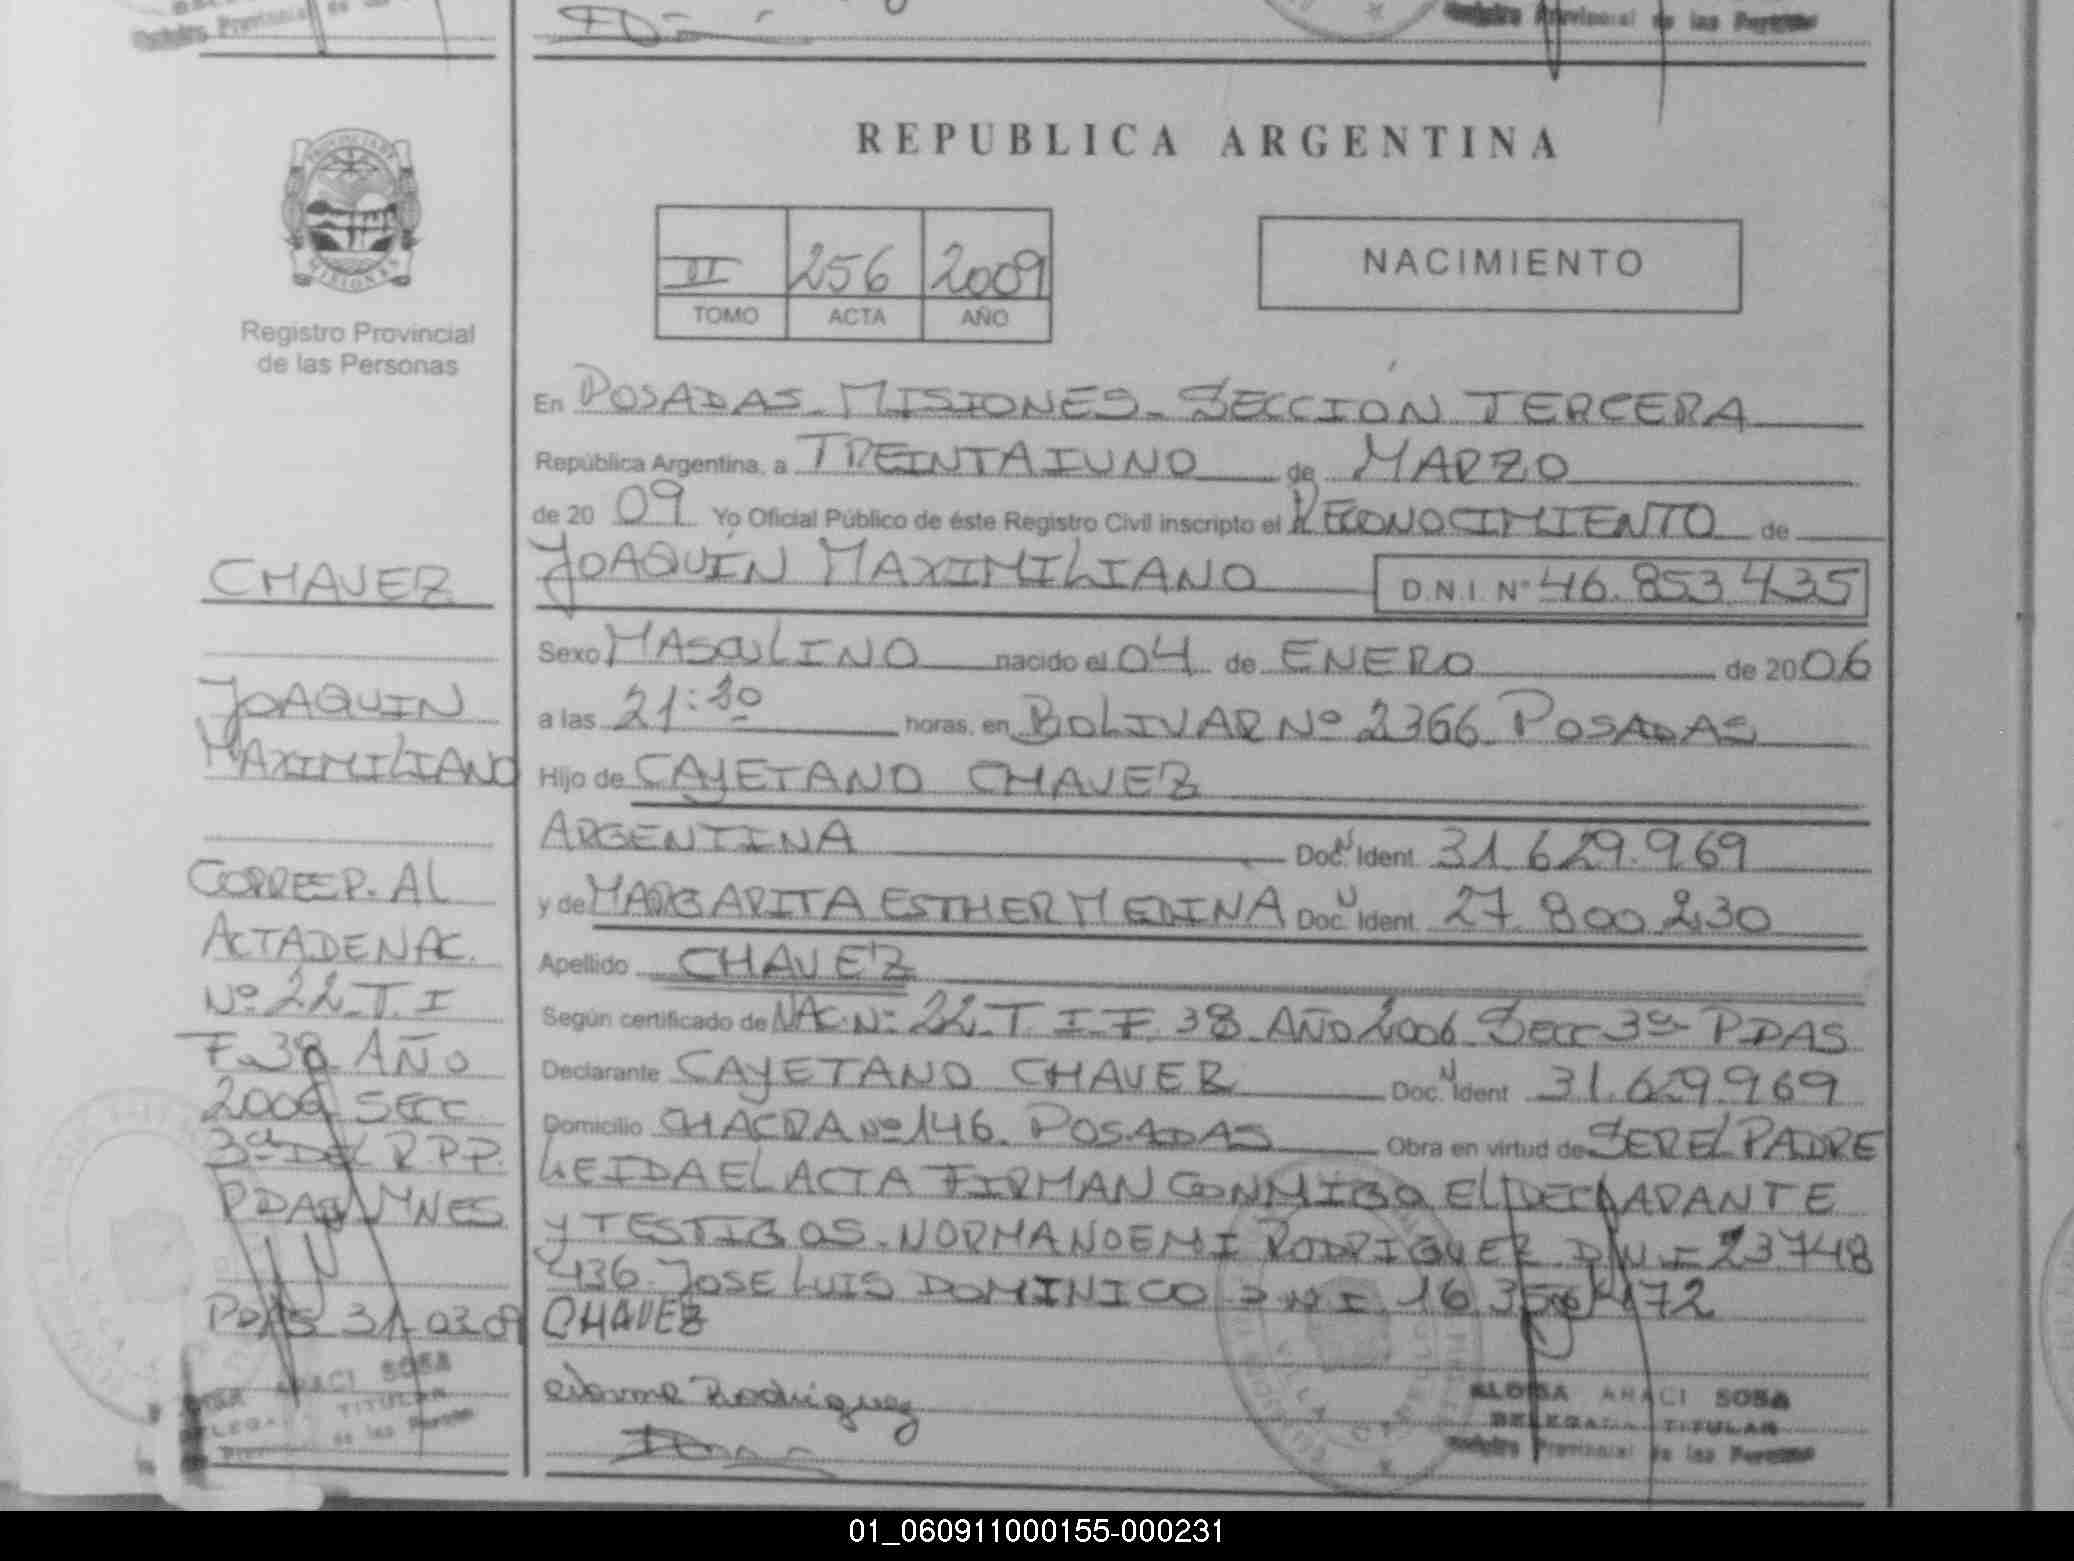 Registro Provincial de las Personas
REPUBLICA ARGENTINA
PROVINCIA DE
MISIONES
Registro Provincial
de las Personas
II 256 2009
TOMO ACTA AÑO
NACIMIENTO
En POSADAS. MISIONES. SECCIÓN TERCERA
República Argentina, a TREINTAIUNO de MARZO
de 20 09 Yo Oficial Público de éste Registro Civil inscripto el RECONOCIMIENTO de
JOAQUÍN MAXIMILIANO D.N.I. Nº 46.853.435
Sexo MASCULINO nacido el 04 de ENERO de 2006
a las 21:30 horas, en BOLIVAR Nº 2366 POSADAS
Hijo de CAYETANO CHAVEZ
ARGENTINA Doc. Ident. 31.629.969
y de MARGARITA ESTHER MEDINA Doc. Ident. 27.800.230
Apellido CHAVEZ
Según certificado de NAC. Nº 22 T. I F. 38 AÑO 2006 SECC 3ª PDAS
Declarante CAYETANO CHAVEZ Doc. Ident 31.629.969
Domicilio CHACRA Nº 146. POSADAS Obra en virtud de SER EL PADRE
LEIDA EL ACTA FIRMAN CONMIGO EL DECLARANTE
Y TESTIGOS. NORMA NOEMI RODRIGUEZ D.N.I 23.748
436. JOSE LUIS DOMINICO D.N.I. 16.35 172
CHAVEZ
Norma Rodriguez
ELOISA ARACI SOSA
DELEGADA TITULAR
Registro Provincial de las Personas
CHAVEZ
JOAQUIN
MAXIMILIANO
CORRESP. AL
ACTA DE NAC.
Nº 22 T. I
F. 38 AÑO
2006 SECC.
3ª DEL R.P.P.
PDAS MNES
PDAS 31.03.09
ARACI SOSA
TITULAR
de las Personas
01_060911000155-000231